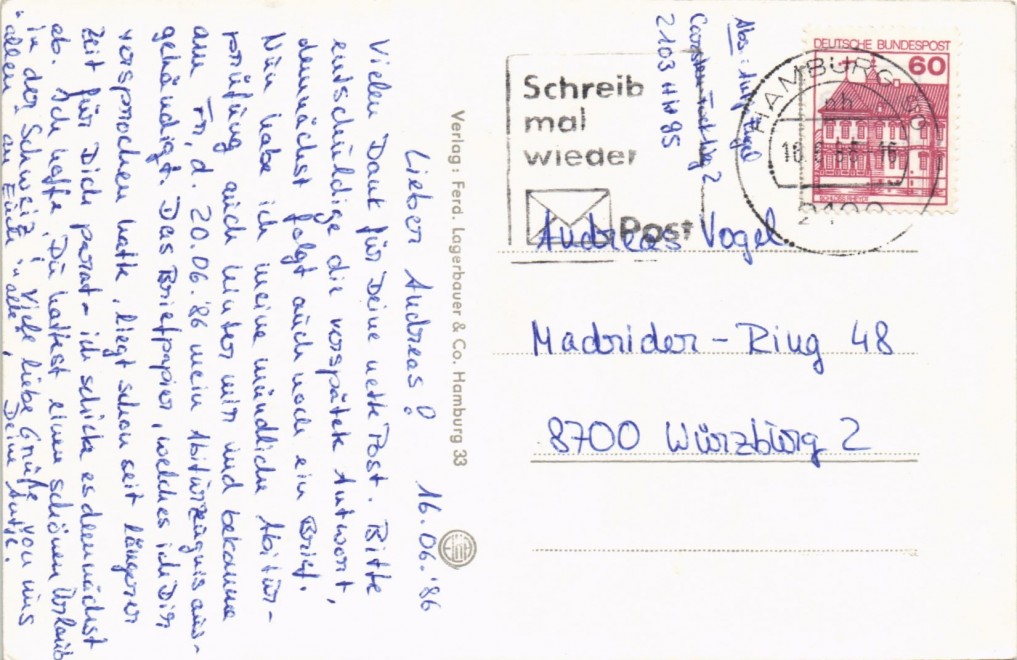 Lieber Andreas! 16.06.'86
Vielen Dank für Deine nette Post. Bitte
entschuldige die verspätete Antwort,
demnächst folgt auch noch ein Brief.
Nun habe ich meine mündliche Abitur-
prüfung auch hinter mir und bekomme
am Fr, d. 20.06.'86 mein Abiturzeugnis aus-
gehändigt. Das Briefpapier, welches ich Dir
versprochen hatte, liegt schon seit längerer
Zeit für Dich parat - ich schicke es demnächst
ab. Ich hoffe, Du hattest einen schönen Urlaub
in der Schweiz! Viele liebe Grüße von uns
allen an Euch alle, Deine Antje.
Verlag: Ferd. Lagerbauer & Co. Hamburg 33
Abs.: Vogel
2
2103 HH 95
Schreib
mal
wieder
Post
DEUTSCHE BUNDESPOST
60
SCHLOSS RHEYDT
HAMBURG
2100
Andreas Vogel
Madrider-Ring 48
8700 Würzburg 2